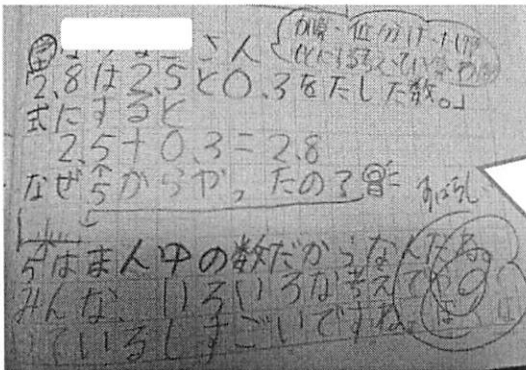 さん
2.8は2.5と0.3をたした数。」
式にすると
2.5+0.3=2.8
なぜ5からやったの?
すばらしい
5はまん中の数だからなんだね。
みんな、いろいろな考えでやっ
ているしすごいですね。